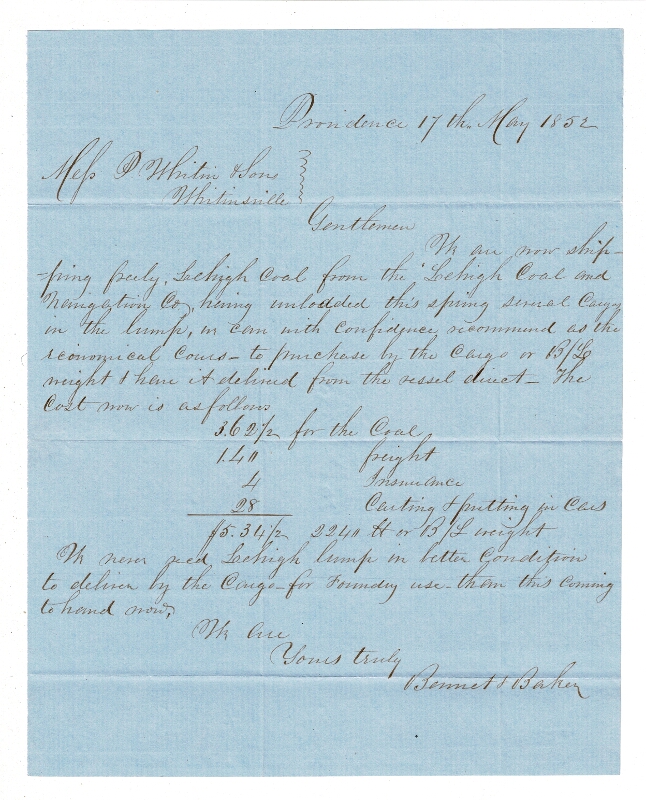 Providence 17th. May 1852
Mess P Whitin & Sons
Whitinsville
Gentlemen
We are now ship-
-ping freely, Lehigh Coal from the "Lehigh Coal and
Navigation Co, having unloaded this spring several Cargo
in the lump, we can with confidence recommend as the
economical Cours- to purchase by the Cargo or B/L
weight & have it delivered from the vessel direct- The
Cost now is as follows
3.62 1/2 for the Coal
1.40 freight
4 Insurance
28 Carting & putting in Cars
$5.34 1/2 2240 lb or B/L weight
We never recd Lehigh lump in better Condition
to deliver by the Cargo- for Foundry use- than this coming
to hand now,
We are
Yours truly
Bennet & Baker